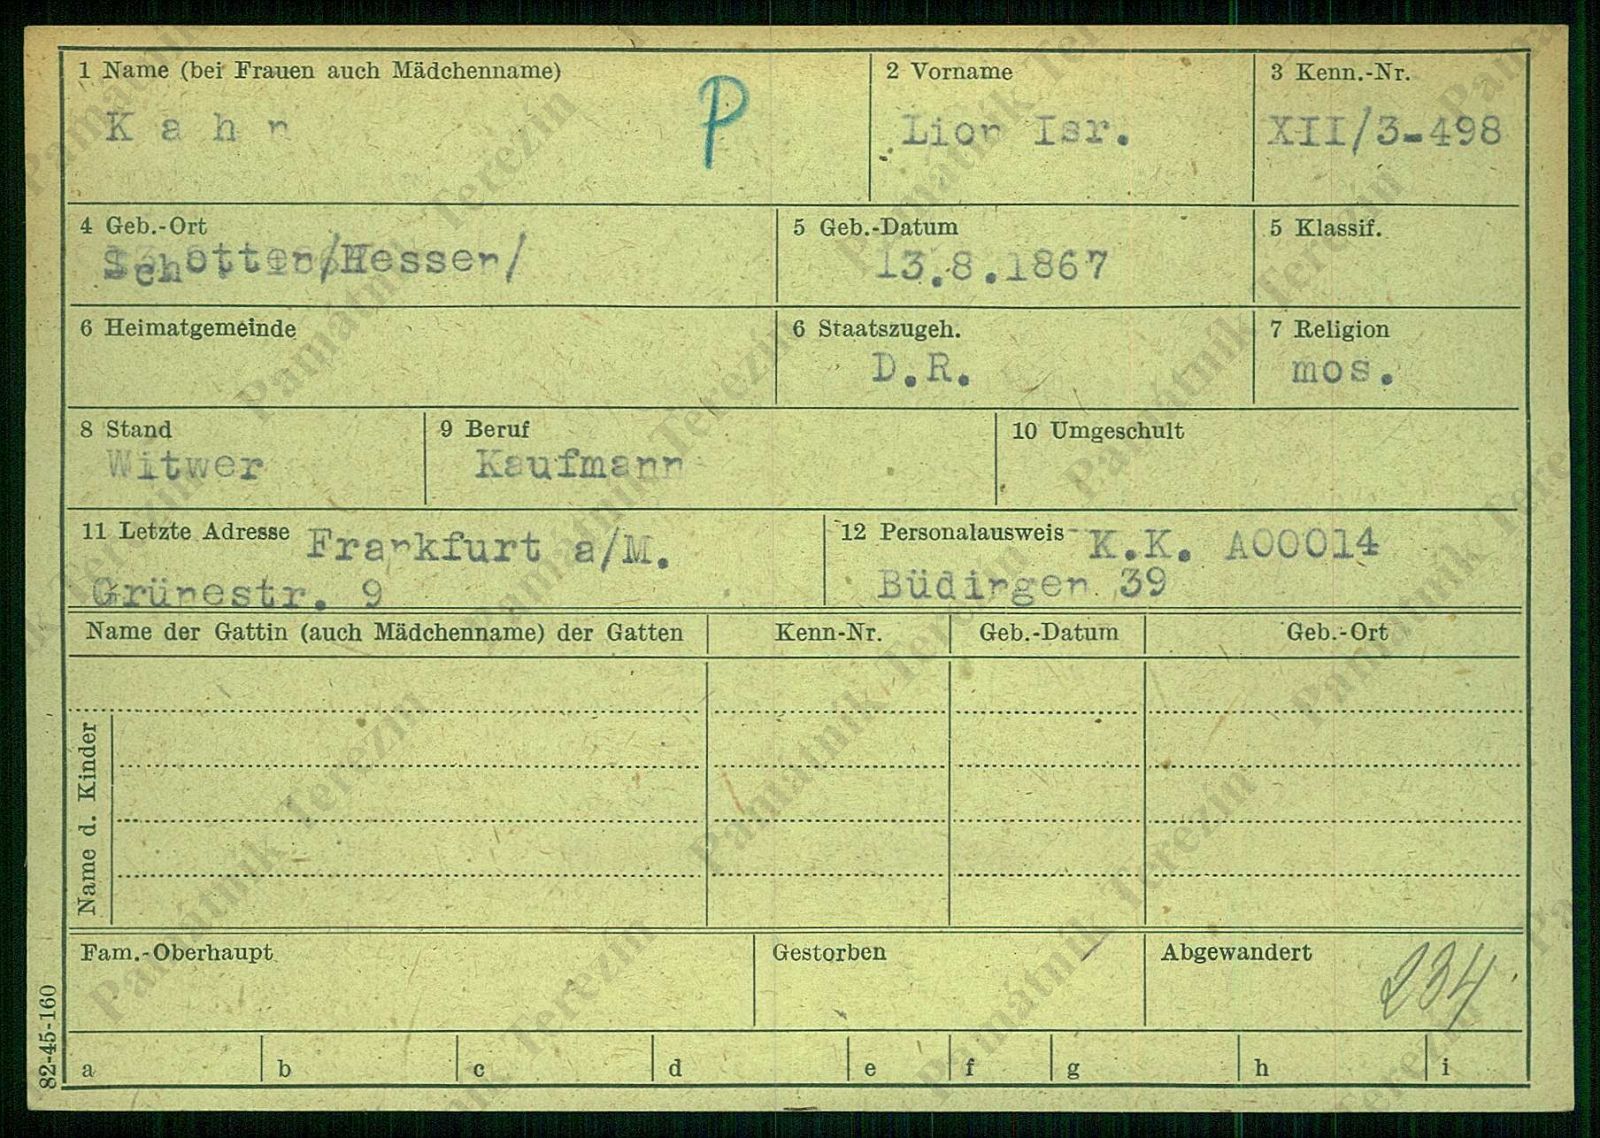 1 Name (bei Frauen auch Mädchenname)
Kahn
P
2 Vorname
Lion Isr.
3 Kenn.-Nr.
XII/3-498
4 Geb.-Ort
Schotten/Hessen/
5 Geb.-Datum
13.8.1867
5 Klassif.
6 Heimatgemeinde
6 Staatszugeh.
D.R.
7 Religion
mos.
8 Stand
Witwer
9 Beruf
Kaufmann
10 Umgeschult
11 Letzte Adresse Frankfurt a/M.
Grünestr. 9
12 Personalausweis K.K. A00014
Büdingen 39
Name der Gattin (auch Mädchenname) der Gatten
Kenn-Nr.
Geb.-Datum
Geb.-Ort
Name d. Kinder
Fam.-Oberhaupt
Gestorben
Abgewandert
234
82-45-160
a b c d e f g h i
Památník Terezín